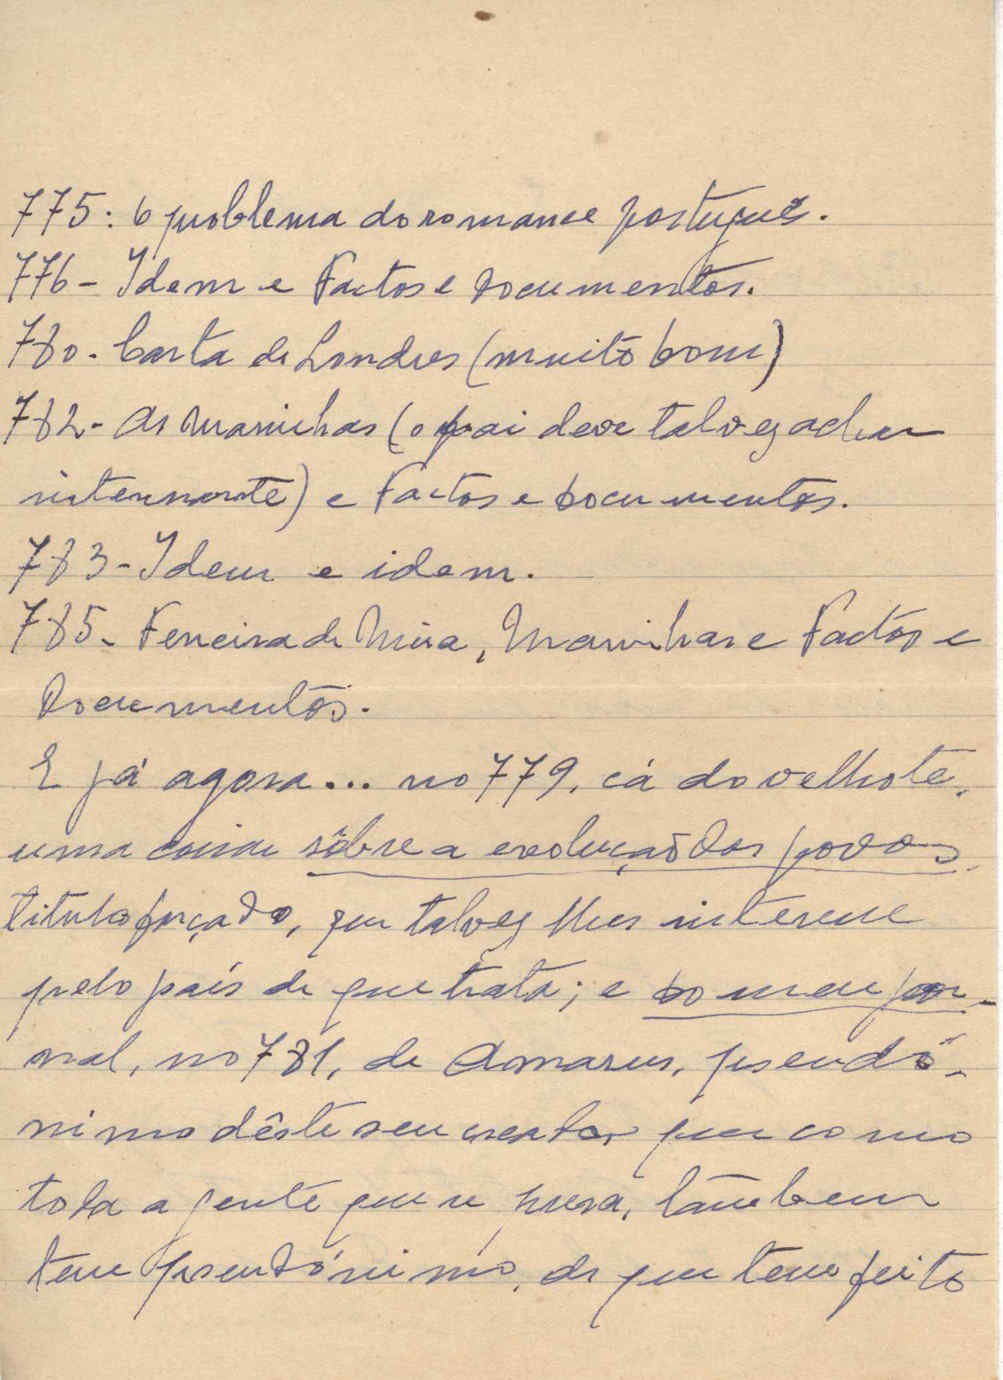 775: O problema do romance português.
776 - Idem e Factos e Documentos.
780 - Carta de Londres (muito bom)
782 - As Marinhas (o pai deve talvez achar
interessante) e Factos e Documentos.
783 - Idem e idem.
785 - Ferreira de Mira, Marinhas e Factos e
Documentos.
E já agora... no 779, cá do velhote,
uma coisa sôbre a evolução dos povos,
titulo forçado, que talvez lhes interesse
pelo país de que trata; e do meu jor-
nal, no 781, de Amarus, pseudó-
nimo dêste seu creador que como
toda a gente que se preza, também
tem pseudónimo, de que tem feito